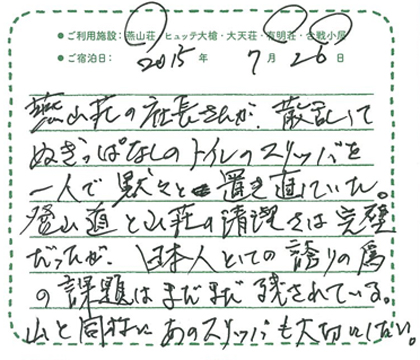 ●ご利用施設：燕山荘・ヒュッテ大槍・大天荘・有明荘・合戦小屋
●ご宿泊日：2015年 7月 26日
燕山荘の社長さんが、散乱して
ぬぎっぱなしのトイレのスリッパを
一人で黙々と置き直していた。
登山道と山荘の清潔さは完璧
だったが、日本人としての誇りの為
の課題はまだまだ残されている。
山と同様にあのスリッパも大切にしたい。